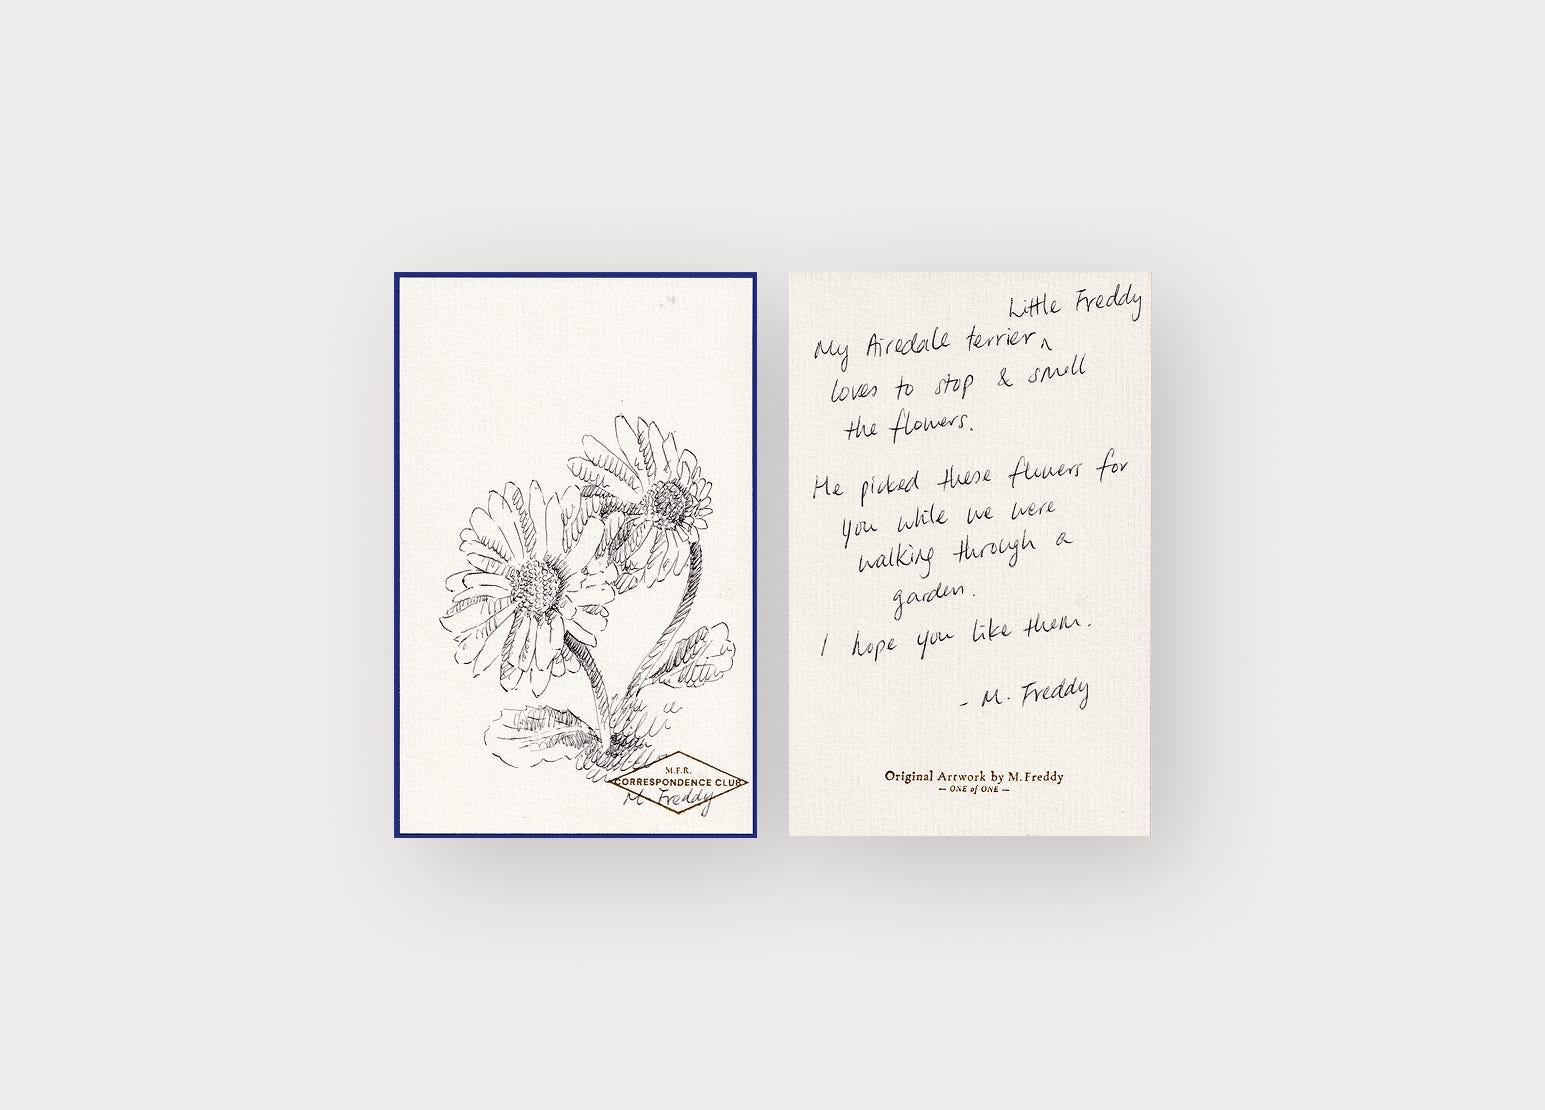 M.F.R.
CORRESPONDENCE CLUB
M. Freddy
Little Freddy
My Airedale terrier ^
loves to stop & smell
the flowers.
He picked these flowers for
you while we were
walking through a
garden.
I hope you like them.
- M. Freddy
Original Artwork by M. Freddy
— ONE of ONE —